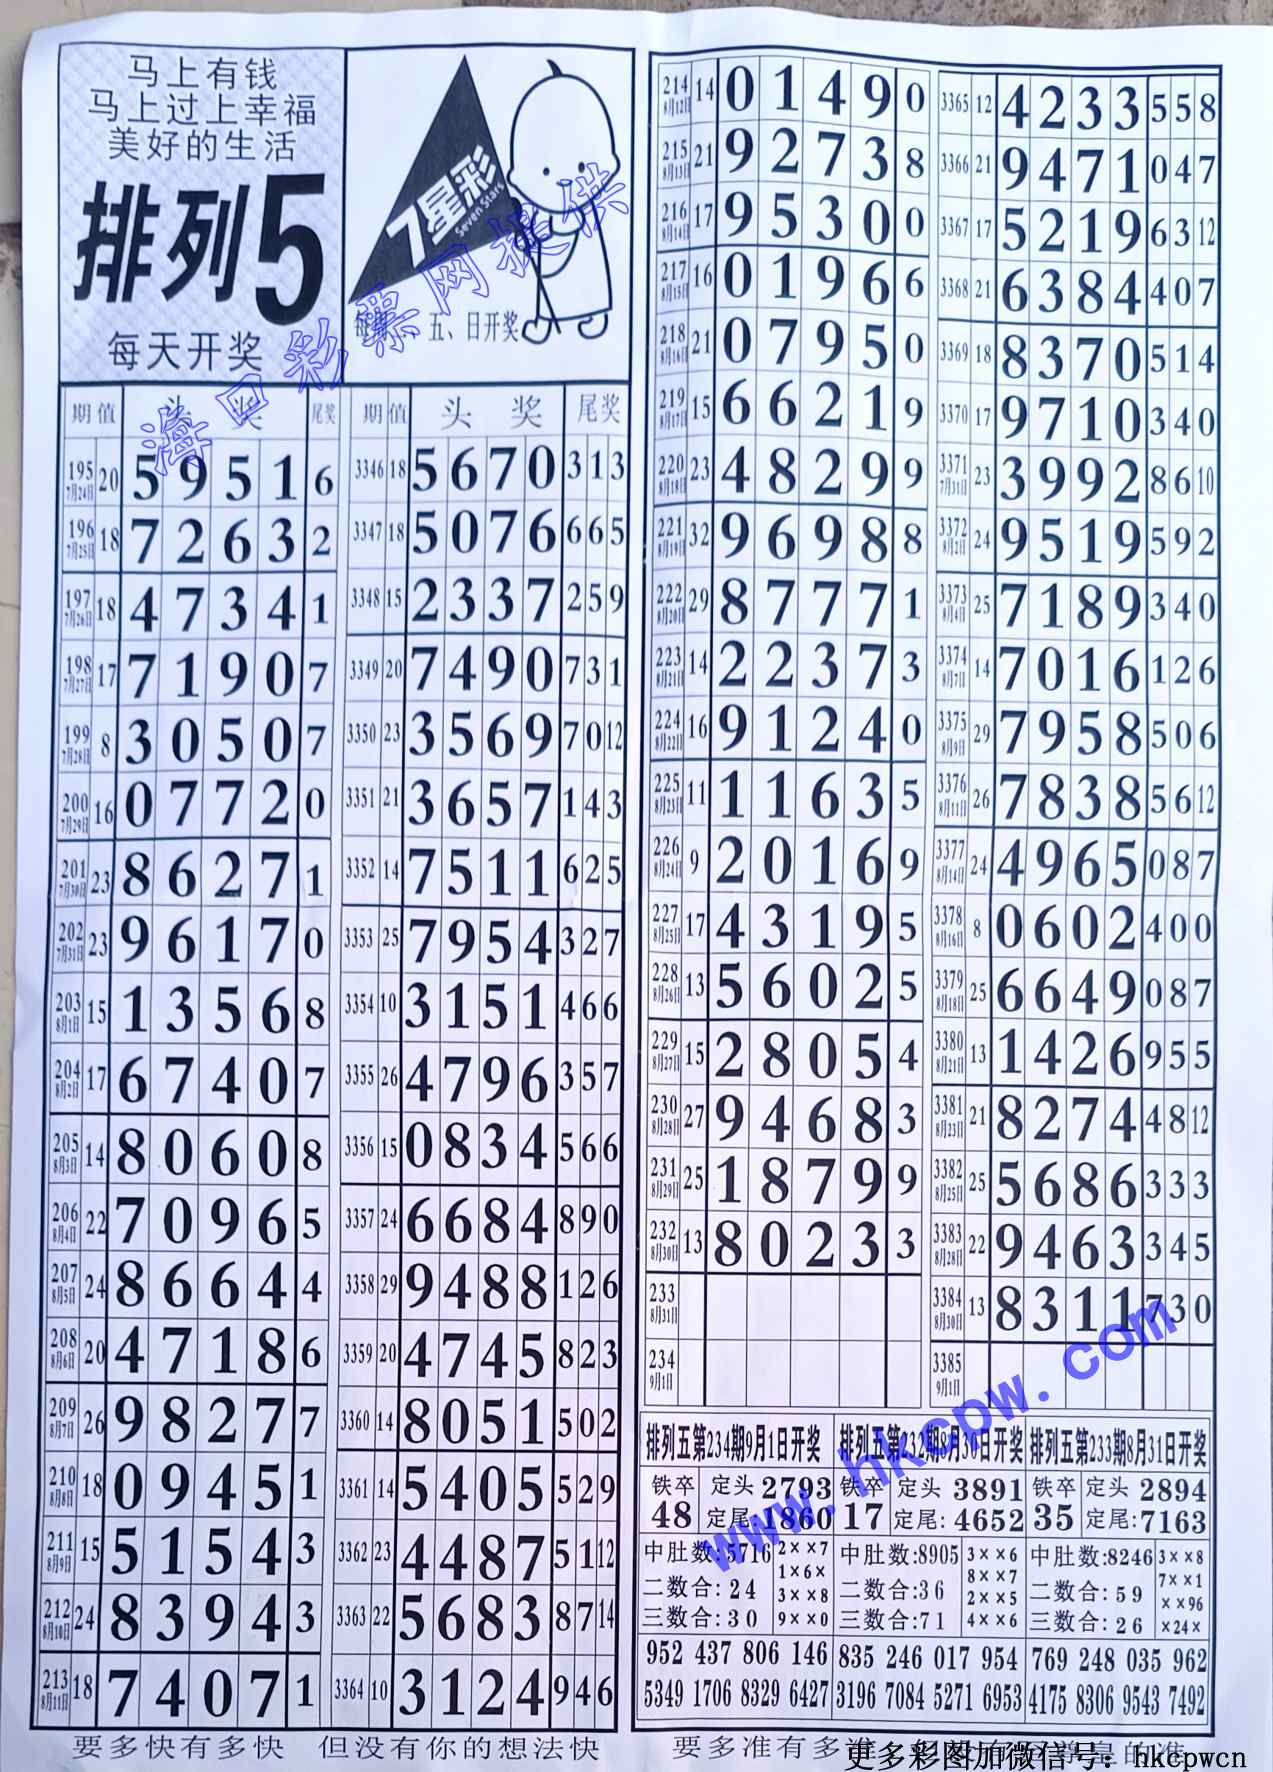 马上有钱
马上过上幸福
美好的生活
排列5
每天开奖
7星彩
Seven Stars
五、日开奖
海口彩票网提供
期 值 头 奖 尾奖
195 7月24日 20 5 9 5 1 6
196 7月25日 18 7 2 6 3 2
197 7月26日 18 4 7 3 4 1
198 7月27日 17 7 1 9 0 7
199 7月28日 8 3 0 5 0 7
200 7月29日 16 0 7 7 2 0
201 7月30日 23 8 6 2 7 1
202 7月31日 23 9 6 1 7 0
203 8月1日 15 1 3 5 6 8
204 8月2日 17 6 7 4 0 7
205 8月3日 14 8 0 6 0 8
206 8月4日 22 7 0 9 6 5
207 8月5日 24 8 6 6 4 4
208 8月6日 20 4 7 1 8 6
209 8月7日 26 9 8 2 7 7
210 8月8日 18 0 9 4 5 1
211 8月9日 15 5 1 5 4 3
212 8月10日 24 8 3 9 4 3
213 8月11日 18 7 4 0 7 1
期 值 头 奖 尾奖
3346 18 5 6 7 0 3 1 3
3347 18 5 0 7 6 6 6 5
3348 15 2 3 3 7 2 5 9
3349 20 7 4 9 0 7 3 1
3350 23 3 5 6 9 7 0 12
3351 21 3 6 5 7 1 4 3
3352 14 7 5 1 1 6 2 5
3353 25 7 9 5 4 3 2 7
3354 10 3 1 5 1 4 6 6
3355 26 4 7 9 6 3 5 7
3356 15 0 8 3 4 5 6 6
3357 24 6 6 8 4 8 9 0
3358 29 9 4 8 8 1 2 6
3359 20 4 7 4 5 8 2 3
3360 14 8 0 5 1 5 0 2
3361 14 5 4 0 5 5 2 9
3362 23 4 4 8 7 5 1 12
3363 22 5 6 8 3 8 7 14
3364 10 3 1 2 4 9 4 6
214 8月12日 14 0 1 4 9 0
215 8月13日 21 9 2 7 3 8
216 8月14日 17 9 5 3 0 0
217 8月15日 16 0 1 9 6 6
218 8月16日 21 0 7 9 5 0
219 8月17日 15 6 6 2 1 9
220 8月18日 23 4 8 2 9 9
221 8月19日 32 9 6 9 8 8
222 8月20日 29 8 7 7 7 1
223 8月21日 14 2 2 3 7 3
224 8月22日 16 9 1 2 4 0
225 8月23日 11 1 1 6 3 5
226 8月24日 9 2 0 1 6 9
227 8月25日 17 4 3 1 9 5
228 8月26日 13 5 6 0 2 5
229 8月27日 15 2 8 0 5 4
230 8月28日 27 9 4 6 8 3
231 8月29日 25 1 8 7 9 9
232 8月30日 13 8 0 2 3 3
233 8月31日
234 9月1日
3365 12 4 2 3 3 5 5 8
3366 21 9 4 7 1 0 4 7
3367 17 5 2 1 9 6 3 12
3368 21 6 3 8 4 4 0 7
3369 18 8 3 7 0 5 1 4
3370 17 9 7 1 0 3 4 0
3371 7月31日 23 3 9 9 2 8 6 10
3372 8月2日 24 9 5 1 9 5 9 2
3373 8月4日 25 7 1 8 9 3 4 0
3374 8月7日 14 7 0 1 6 1 2 6
3375 8月9日 29 7 9 5 8 5 0 6
3376 8月11日 26 7 8 3 8 5 6 12
3377 8月14日 24 4 9 6 5 0 8 7
3378 8月16日 8 0 6 0 2 4 0 0
3379 8月18日 25 6 6 4 9 0 8 7
3380 8月21日 13 1 4 2 6 9 5 5
3381 8月23日 21 8 2 7 4 4 8 12
3382 8月25日 25 5 6 8 6 3 3 3
3383 8月28日 22 9 4 6 3 3 4 5
3384 8月30日 13 8 3 1 1 7 3 0
3385 9月1日
排列五第234期9月1日开奖
铁卒 48 定头 2793
定尾:1860
中肚数:5716
二数合: 24
三数合: 30
2××7
1×6×
3××8
9××0
952 437 806 146
5349 1706 8329 6427
排列五第232期8月30日开奖
铁卒 17 定头 3891
定尾:4652
中肚数:8905
二数合:36
三数合:71
3××6
8××7
2××5
4××6
835 246 017 954
3196 7084 5271 6953
排列五第233期8月31日开奖
铁卒 35 定头 2894
定尾:7163
中肚数:8246
二数合: 59
三数合: 26
3××8
7××1
××96
×24×
769 248 035 962
4175 8306 9543 7492
www.hkcpw.com
要多快有多快 但没有你的想法快
要多准有多准
更多彩图加微信号：hkcpwcn